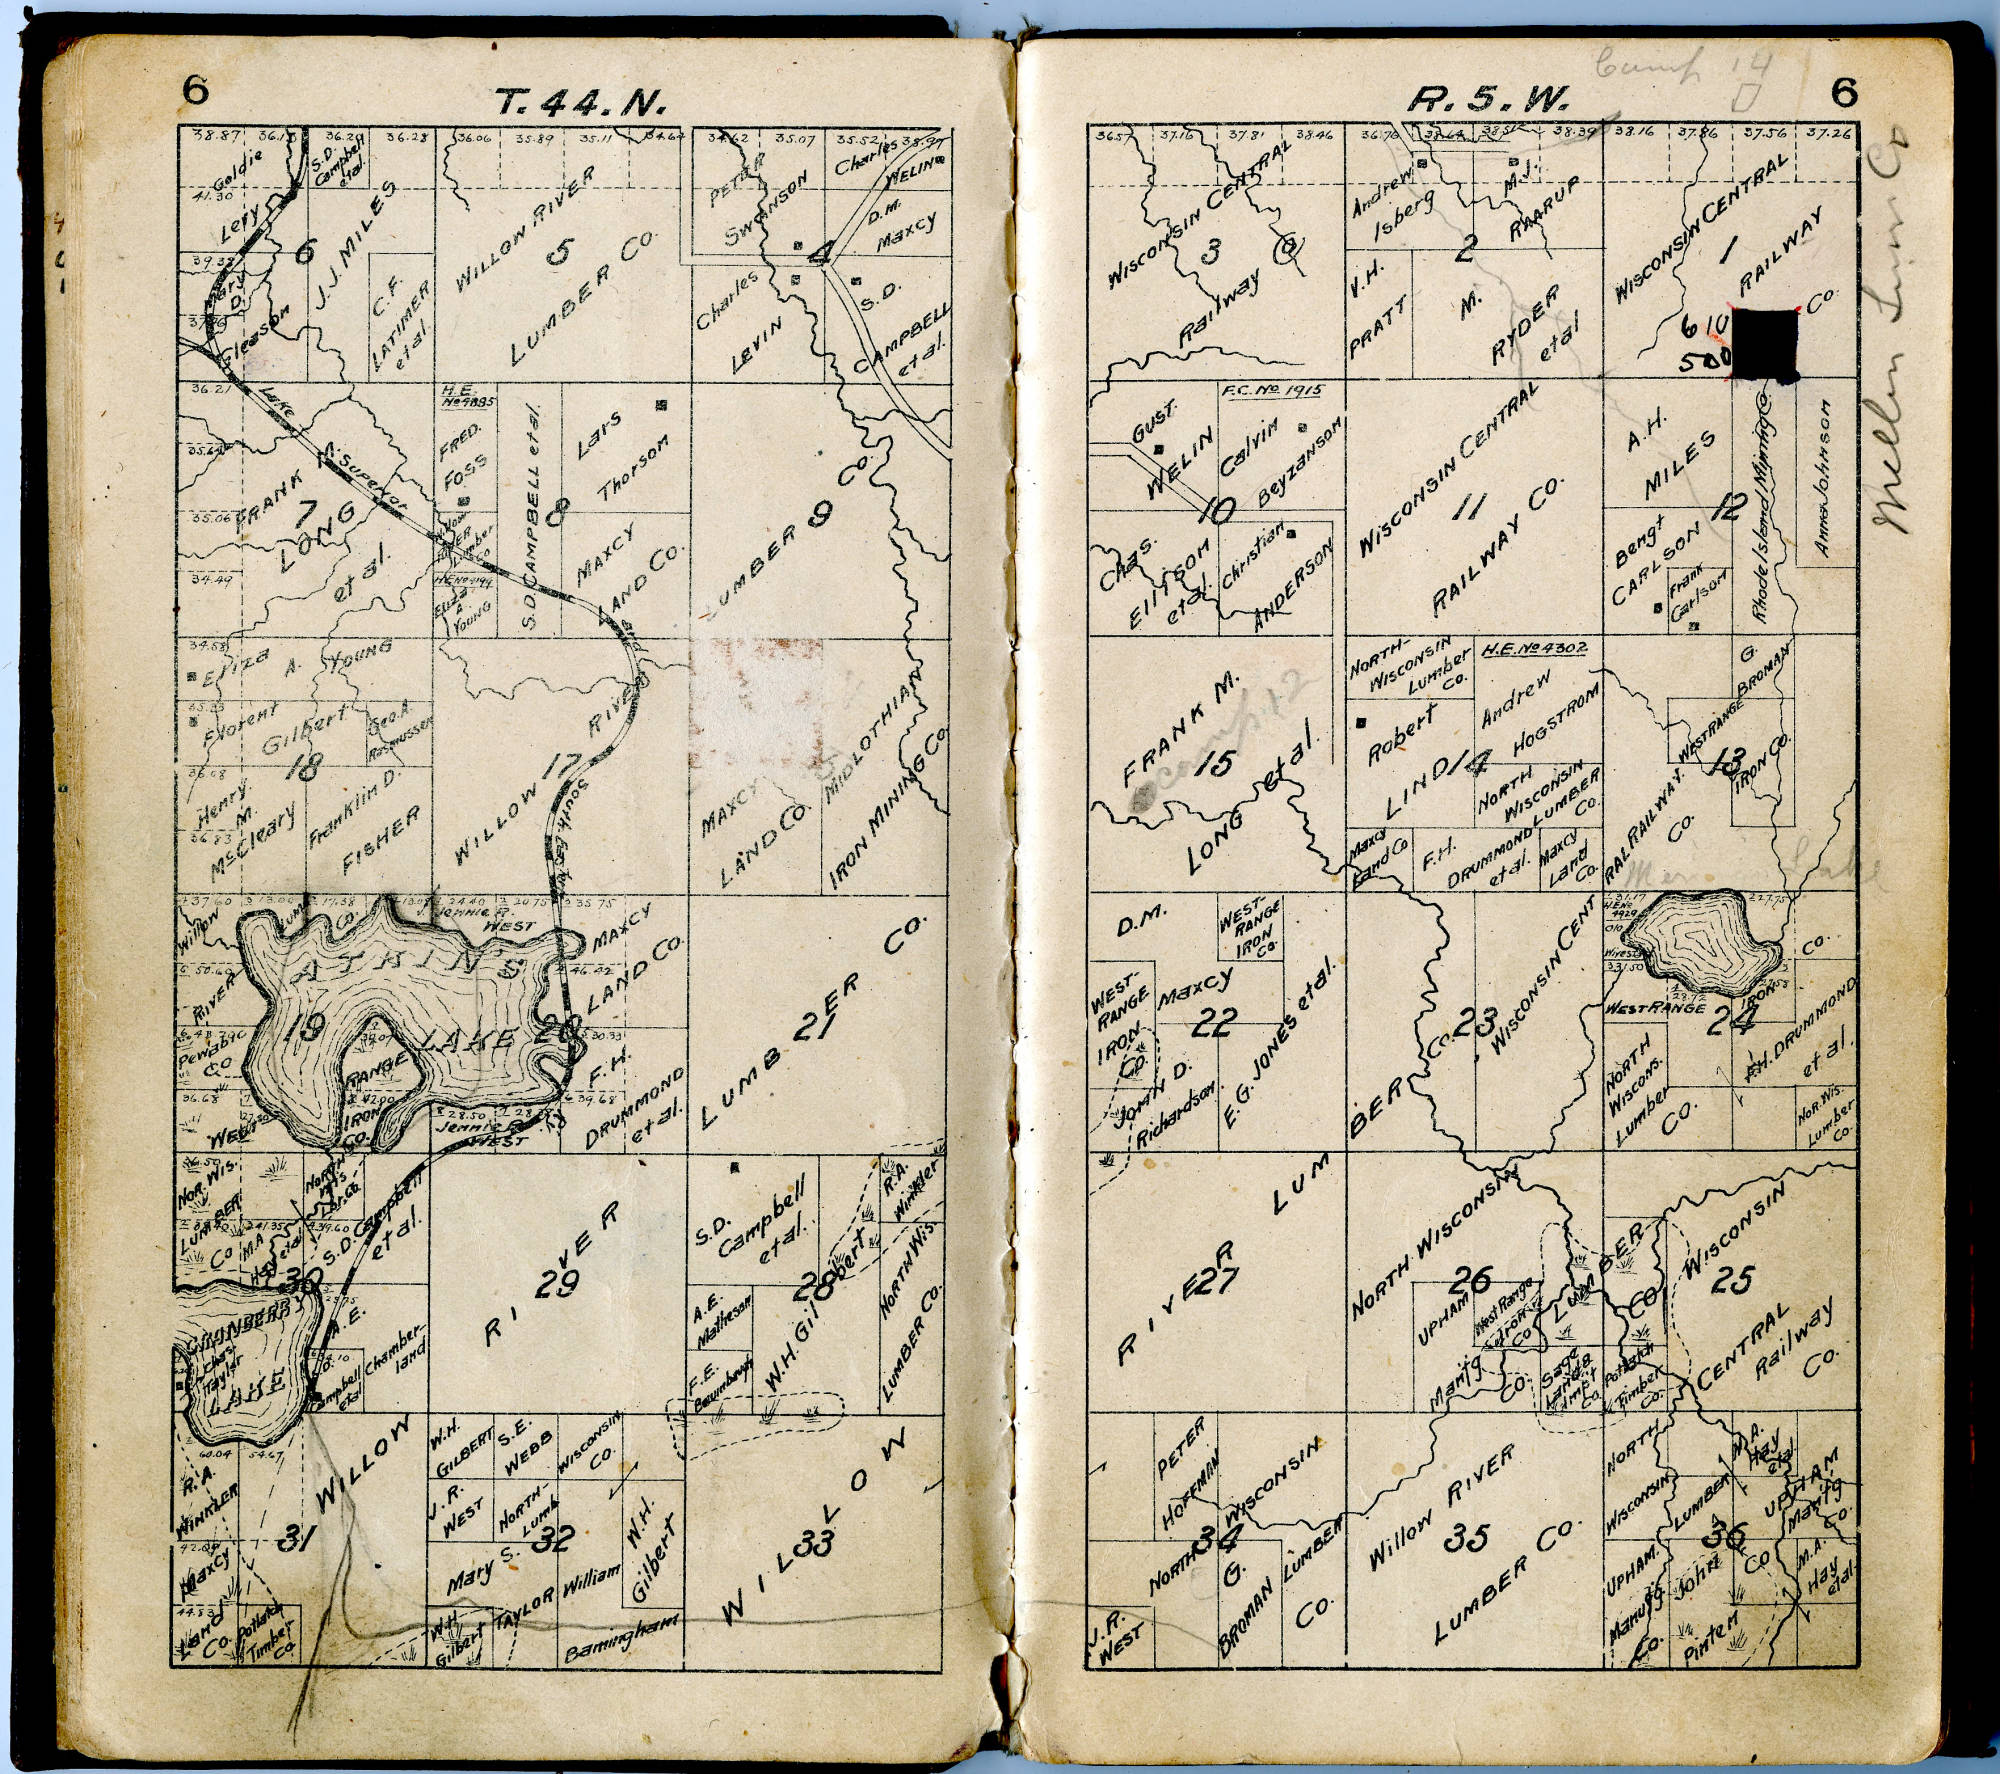 6
T. 44. N.
38.87 36.13 36.20 36.28 36.06 35.89 35.11 34.64 34.62 35.07 35.52
Goldie
Levy
41.30
S.D.
Campbell
et al.
39.38
Mary
D.
Gleason
6
J. J. MILES
C. F.
LATIMER
et al.
WILLOW RIVER
5
LUMBER CO.
PETER
SWANSON
Charles
WELIN
D.M.
Maxcy
4
Charles
LEVIN
S.D.
CAMPBELL
et al.
36.21
35.06
34.49
Lake
Superior
FRANK
7
LONG
et al.
H.E.
No 4885
FRED.
FOSS
Willow
RIVER
Lumber
Co
Eliza
A.
YOUNG
S.D. CAMPBELL et al.
8
Lars
Thorson
MAXCY
LAND CO.
LUMBER 9 CO.
34.58
Eliza A. YOUNG
Florent
Gilbert
Geo. A.
Rasmussen
18
36.08
Henry
M.
McCleary
36.83
Franklin D.
FISHER
WILLOW 17 RIVER
MAXCY
LAND CO.
MIDLOTHIAN
IRON MINING CO.
37.60
Willow
RIVER
Lum
Co.
Jennie R.
WEST
35.75
MAXCY
LAND CO.
46.42
50.60
ATKINS
LAKE
19
20
Pewabic
Co
36.68
WEST
RANGE
IRON
Co.
28.50
Jennie R.
WEST
39.68
F. H.
DRUMMOND
et al.
21
LUMBER CO.
NOR. WIS.
LUMBER
Co
North
Wis
Lbr. Co
M.A.
Hay
et al
30
S.D. Campbell
et al.
A. E.
Chamber-
land
Chas.
Taylor
LAKE
Campbell
et al
RIVER
29
S.D.
Campbell
et al.
R. A.
Winkler
28
W. H. Gilbert
NORTH WIS.
LUMBER CO.
A. E.
Matheson
F. E.
Baumbaugh
60.04 54.67
R. A.
WINKLER
31
WILLOW
Maxcy
Land
Co.
44.83
Potlatch
Timber
Co.
W. H.
GILBERT
S. E.
WEBB
WISCONSIN
CO.
J. R.
WEST
NORTH-
LUMB
32
W. H.
Gilbert
Mary S.
TAYLOR
William
W. H.
Gilbert
Bamingham
WILLOW
33
6
R. 5. W.
Camp 14
Mellen Lum Co
36.57 37.16 37.81 38.46 36.76 38.64 38.39 38.16 37.86 37.56 37.26
WISCONSIN CENTRAL
3
Railway Co
Andrew
Isberg
M. J.
RAARUP
2
V. H.
PRATT
M.
RYDER
et al
WISCONSIN CENTRAL
1
RAILWAY
Co.
6 10
500
GUST.
WELIN
F.C. No 1915
Calvin
Beyzanson
10
Chas.
Ellison
et al.
Christian
ANDERSON
WISCONSIN CENTRAL
11
RAILWAY CO.
A. H.
MILES
12
Bengt
CARLSON
Frank
Carlson
Rhode Island Mining Co
Anna Johnson
FRANK M.
Camp 12
15
LONG et al.
NORTH-
WISCONSIN
LUMBER
CO.
H.E. No 4302
Andrew
HOGSTROM
Robert
LIND
14
NORTH
WISCONSIN
LUMBER
CO.
Maxcy
Land Co
F. H.
DRUMMOND
et al.
Maxcy
Land
Co.
G.
BROMAN
WEST RANGE
13
IRON CO.
RAL RAILWAY
Co.
Lake
D. M.
Maxcy
WEST-
RANGE
IRON
CO.
WEST-
RANGE
IRON
CO.
22
JOHN D.
Richardson
E. G. JONES et al.
23
WISCONSIN CENT
31.17
H.E. No
4929
27.75
33.50
WEST RANGE
IRON
Co.
24
NORTH
WISCONS.
Lumber
Co.
F.H. DRUMMOND
et al.
NOR. WIS.
Lumber
Co.
LUMBER CO.
RIVER
27
NORTH WISCONSIN
26
LUMBER
CO
UPHAM
Man'f'g
CO.
West Range
Iron
Co
Sage
Land &
Imp't
Co.
Potlatch
Timber
Co.
WISCONSIN
25
CENTRAL
Railway
Co.
PETER
HOFFMAN
WISCONSIN
34
NORTH
G.
BROMAN
LUMBER
Co.
J. R.
WEST
Willow RIVER
35
LUMBER CO.
NORTH
WISCONSIN
LUMBER
CO
M. A.
Hay
et al.
UPHAM
Man'f'g
Co.
36
UPHAM
Manufg
Co.
John
Pintem
M. A.
Hay
et al.